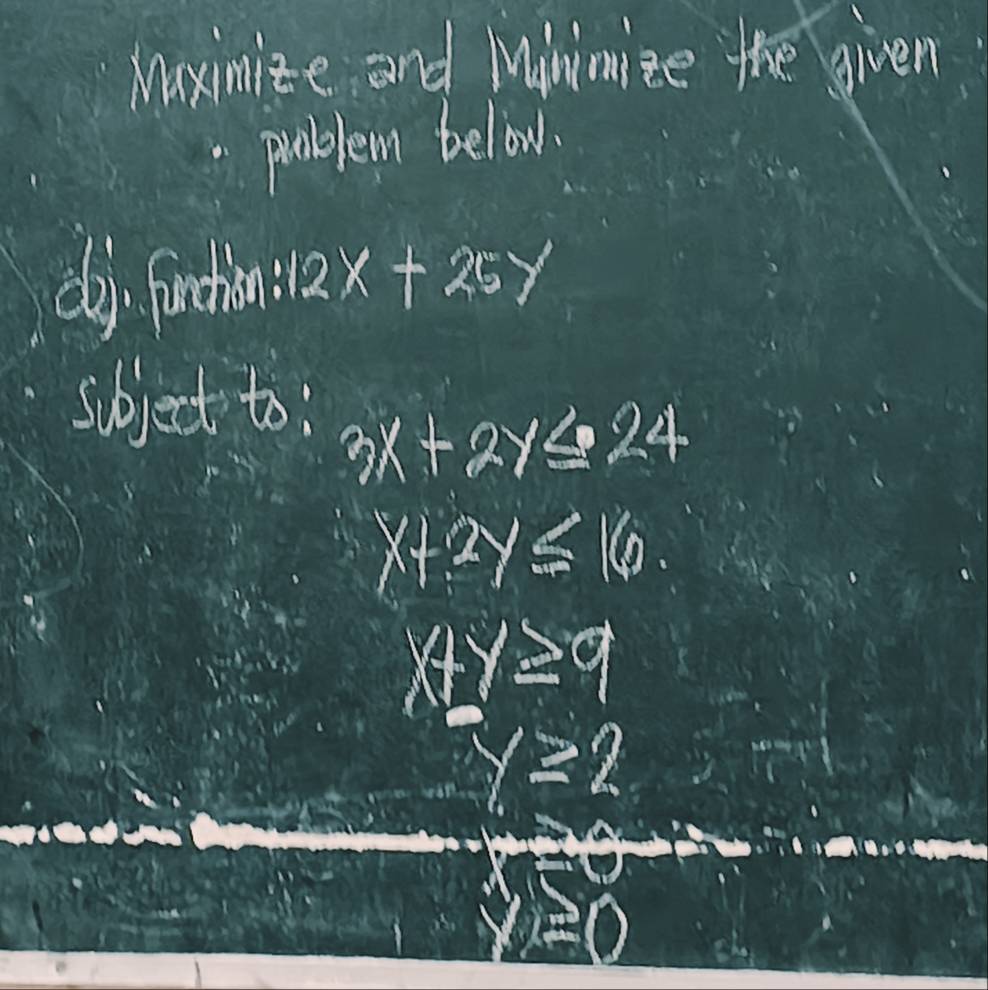 Maximize and Minimize the given
problem below.
obj. function: 12X + 25Y
subject to:
3X + 2Y ≤ 24
X + 2Y ≤ 16.
X + Y ≥ 9
Y ≥ 2
X ≥ 0
Y ≥ 0